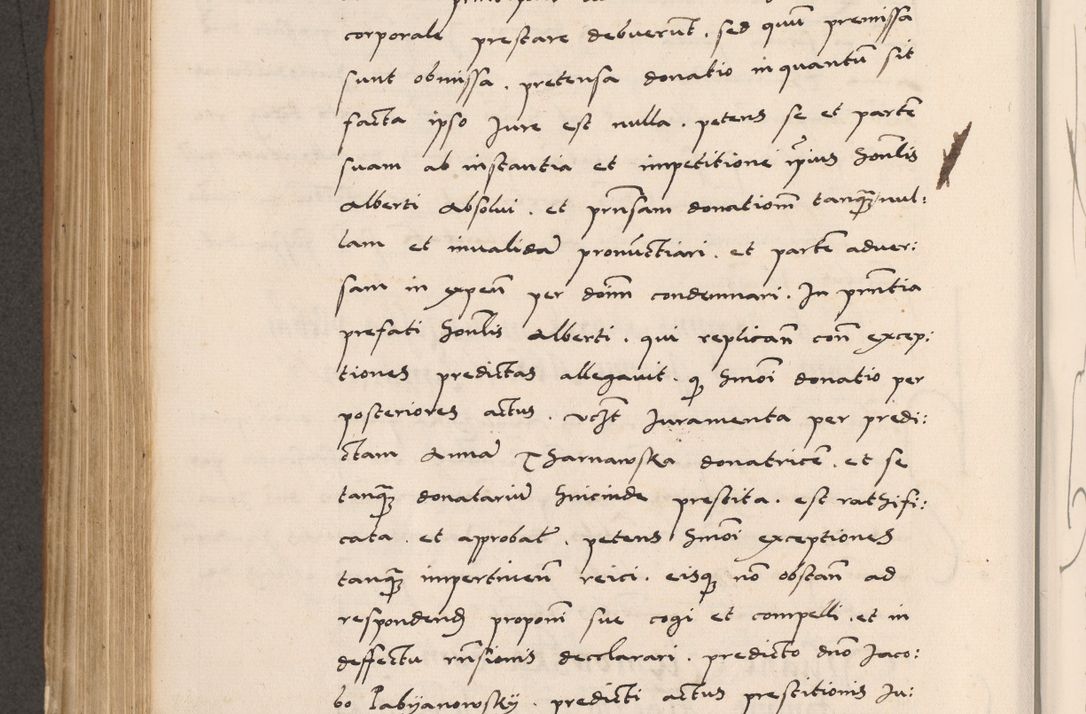 corporale prestare debuerunt̄. sed quum̄ premissa
sunt obmissa. pretensa donatio inquantum̄ sit
facta ipso Jure est nulla. petens se et partem̄
suam ab instantia et impetitione ip̄ius Honl̄is
Alberti Absolui. et prn̄sam donatiom̄ tanq̄ nul:
lam et inualida᷑ pronūctiari. et parte᷑ aduer:
sam in expen̄ per dom̄ condemnari. In prn̄tia
prefati Honl̄is Alberti. qui replican̄ con̄ excep:
tiones predictas allegauit. q̄ Hmōi donatio per
posteriores actus. vcz̄t Juramenta per predi:
ctam Anna᷑ Tharnawska donatrice᷑. et se
tanq̄ donatariu᷑ hincinde prestita. est rathifi:
cata. et approbat᷑. petens Hmōi exceptiones
tanq̄ impertinen̄ reici. eisq̄ nō obstan̄ ad
respondend̄ proponi sue cogi et compelli. et in
deffectu rn̄sionis decclarari. predicto dn̄o Jaco:
bo Pabyanowsky. predicti actus prestitionis Ju: